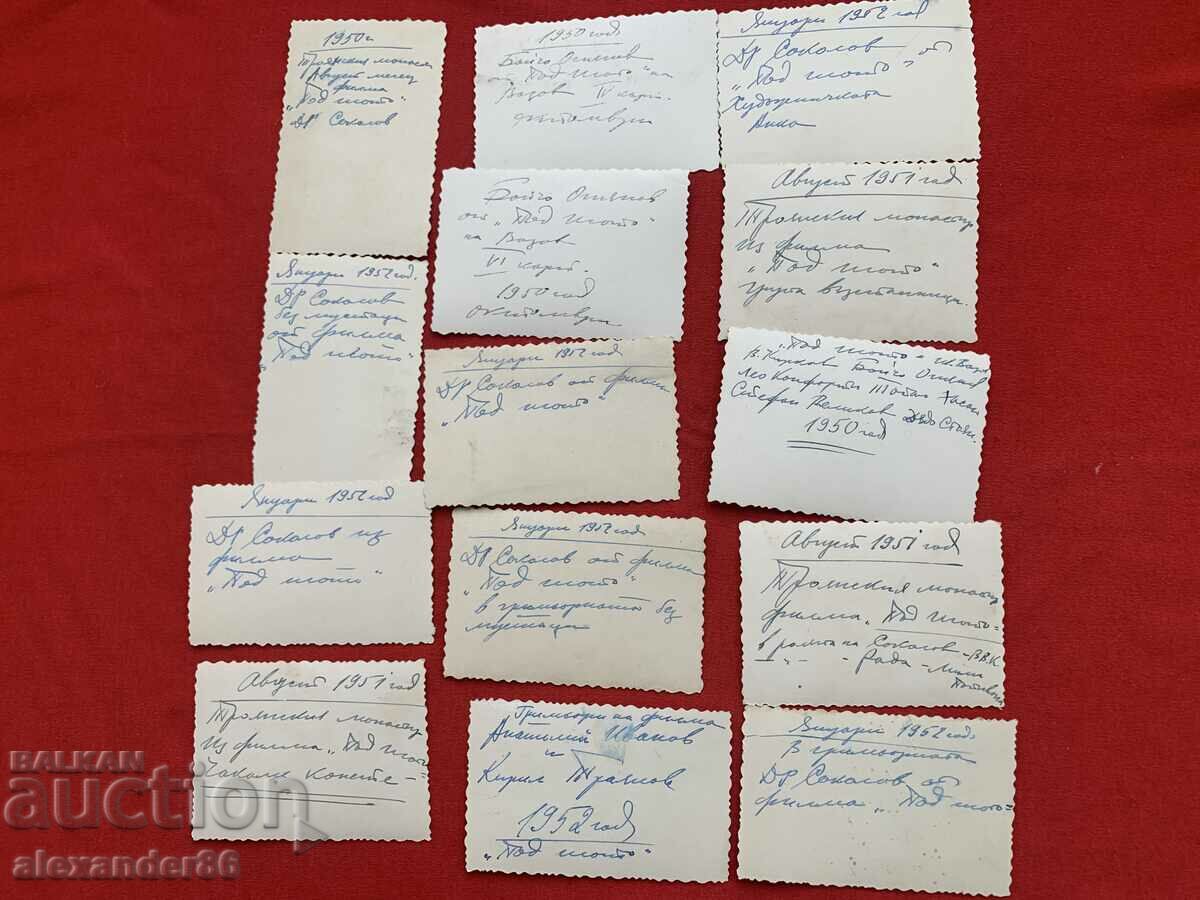 1950 г.
Троянския монаст.
Август месец
филма
"Под игото"
Др Соколов
1950 год
Бойчо Огнянов
от "Под игото" на
Вазов IV карт.
октомври
Януари 1952 год
Др Соколов от
"Под игото"
Художничката
Анка
Бойчо Огнянов
от "Под игото"
на Вазов
VI карт.
1950 год
октомври
Август 1951 год
Троянския монастир
из филма
"Под игото"
група въстаници.
Януари 1952 год.
Др Соколов
без мустаци
от филма
"Под игото"
Януари 1952 год
Др Соколов от филма
"Под игото"
"Под игото" Ив. Вазов
В. Кирков Бойчо Огнянов
Лео Конфорти Хасан
Стефан Великов Дядо Стоян.
1950 год
Януари 1952 год
Др Соколов из
филма
"Под игото"
Януари 1952 год
Др Соколов от филма
"Под игото"
в гримьорната без
мустаци
Август 1951 год
Троянския монастир
филма "Под игото"
в ролята на Соколов - В.В.К
- " - - Рада - Мили
Август 1951 год
Троянския монастир
из филма "Под игото"
Чакаме конете -
Гримьори на филма
Анатолий Иванов
и
Кирил Траянов
1952 год
"Под игото"
Януари 1952 год
В гримьорната
Др Соколов от
филма "Под игото"
BALKAN
auction
alexander86